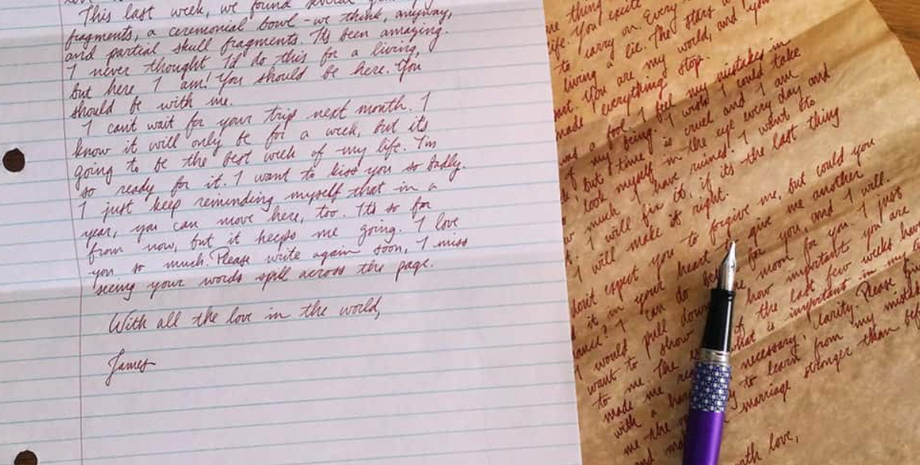 This last week, we found several
fragments, a ceremonial bowl - we think, anyway,
and partial skull fragments. It's been amazing.
I never thought I'd do this for a living,
but here I am! You should be here. You
should be with me.
I can't wait for your trip next month. I
know it will only be for a week, but its
going to be the best week of my life. I'm
so ready for it. I want to kiss you so badly.
I just keep reminding myself that in a
year, you can move here, too. Its so far
from now, but it keeps me going. I love
you so much. Please write again soon, I miss
seeing your words spill across the page.
With all the love in the world,
James
me thing
life. You
to carry on. Every
living a lie. The stars
You are my world, and
made everything stop.
a fool. I felt my mistakes in
my being. I wish I could take
but time is cruel and I am
look myself in the eye every day and
much I have ruined. I want to
I will fix it if its the last thing
I will make it right.
expect you to forgive me, but could you
it in your heart to give me another
I can do for you, and I will.
I would pull down moon for you. I just
want to show how important you are
to me. The the last few weeks have
made me what is important in my
with a necessary, clarity. Please
me - the to learn from my
and marriage stronger than
love,